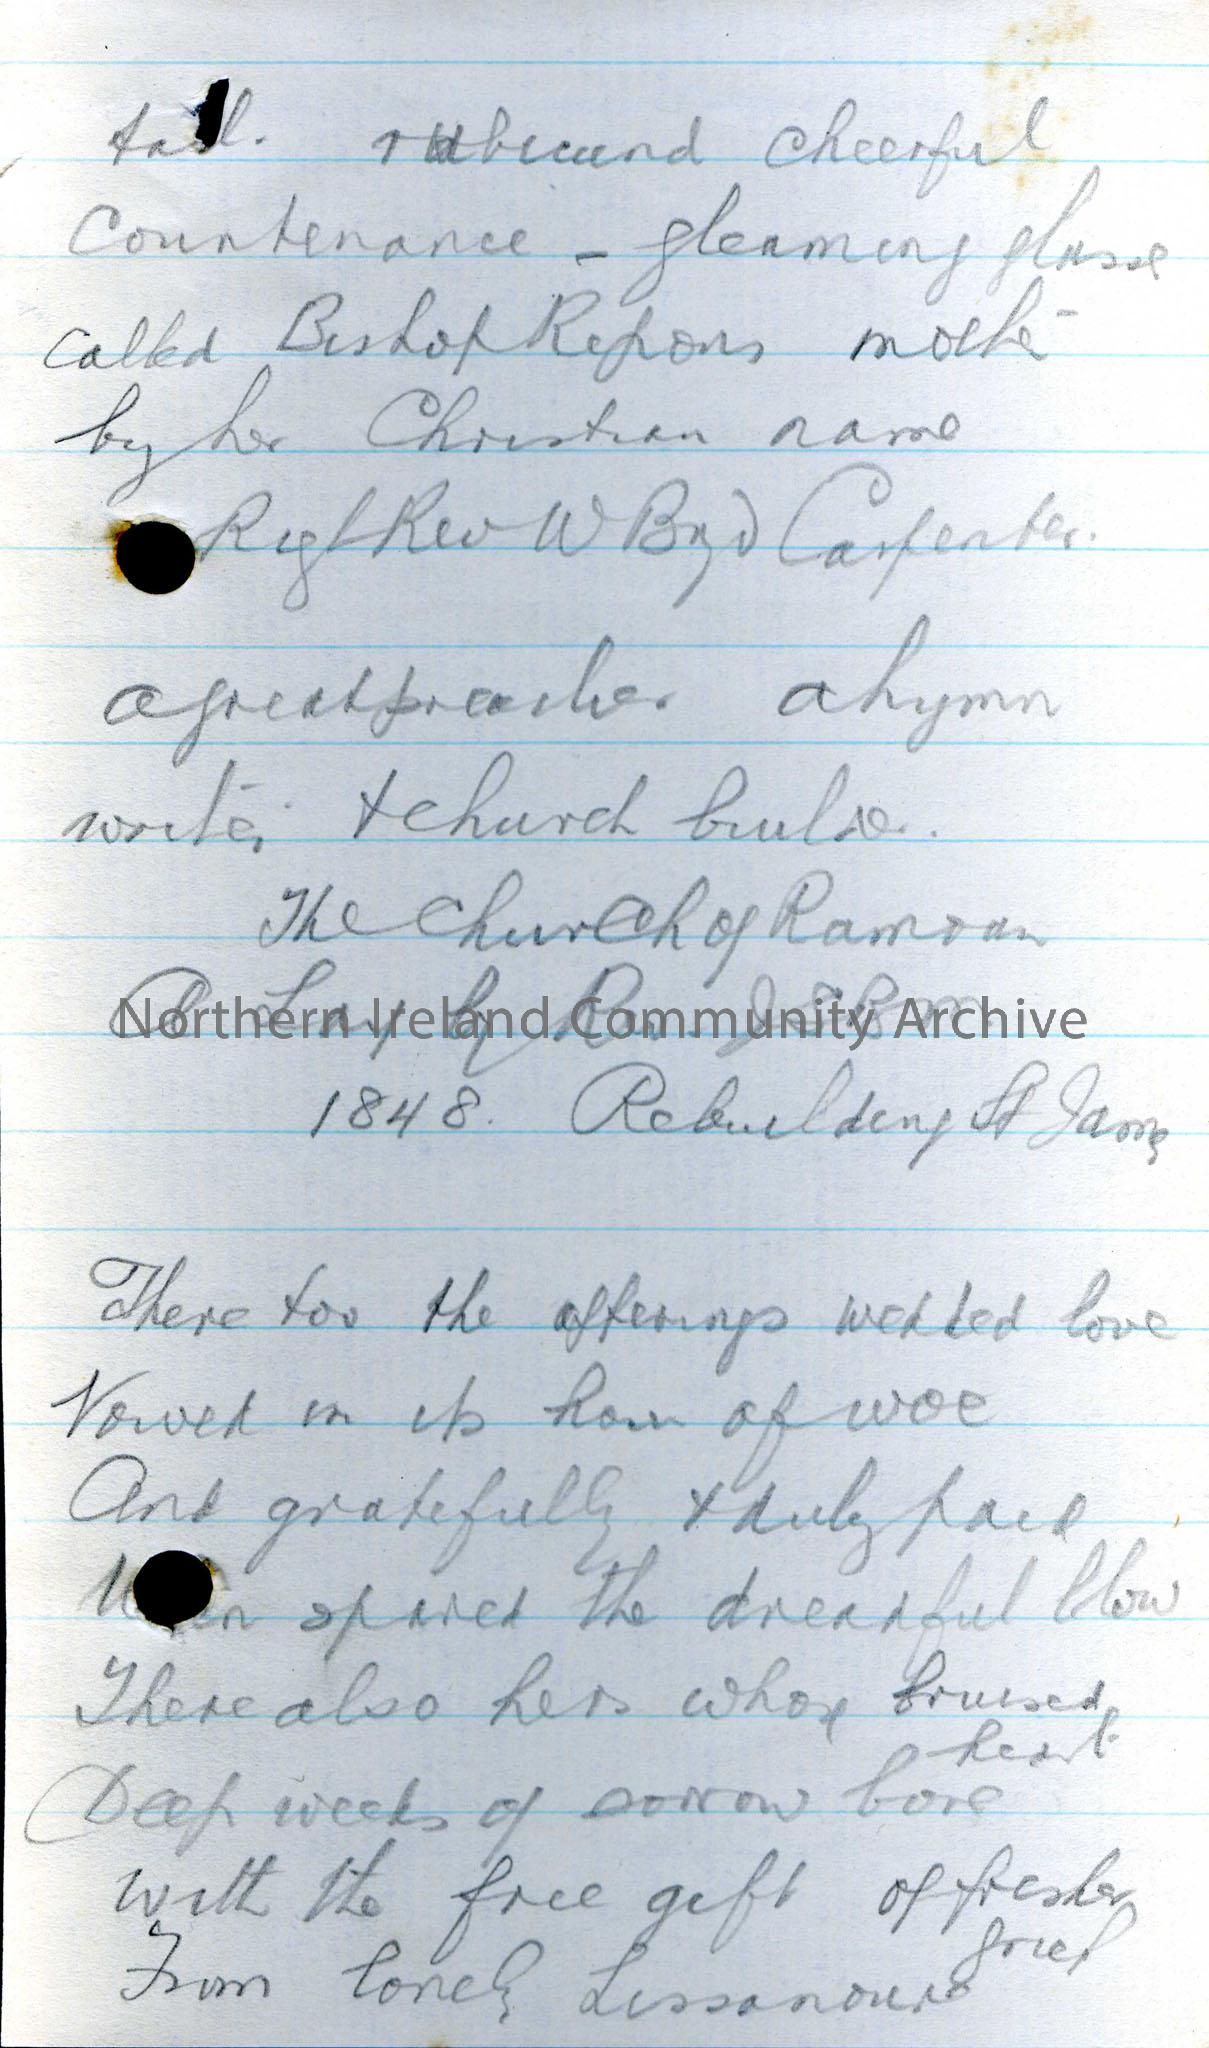 tall. rubicund cheerful
Countenance - gleaming glasse
called Bishop Ripons mother
by her Christian name
Right Rev W Boyd Carpenter.
a great preacher a hymn
writer & church builder.
The Church of Ramoan
A Lay by Rev
Northern Ireland Community Archive
1848. Rebuilding St James
There too the offerings wedded love
Vowed in its hour of woe
And gratefully & duly paid
When spared the dreadful blow
There also hers whose bruised
heart
Deep weeds of sorrow bore
With the free gift of fresher
grief
From lonely Lissanoure